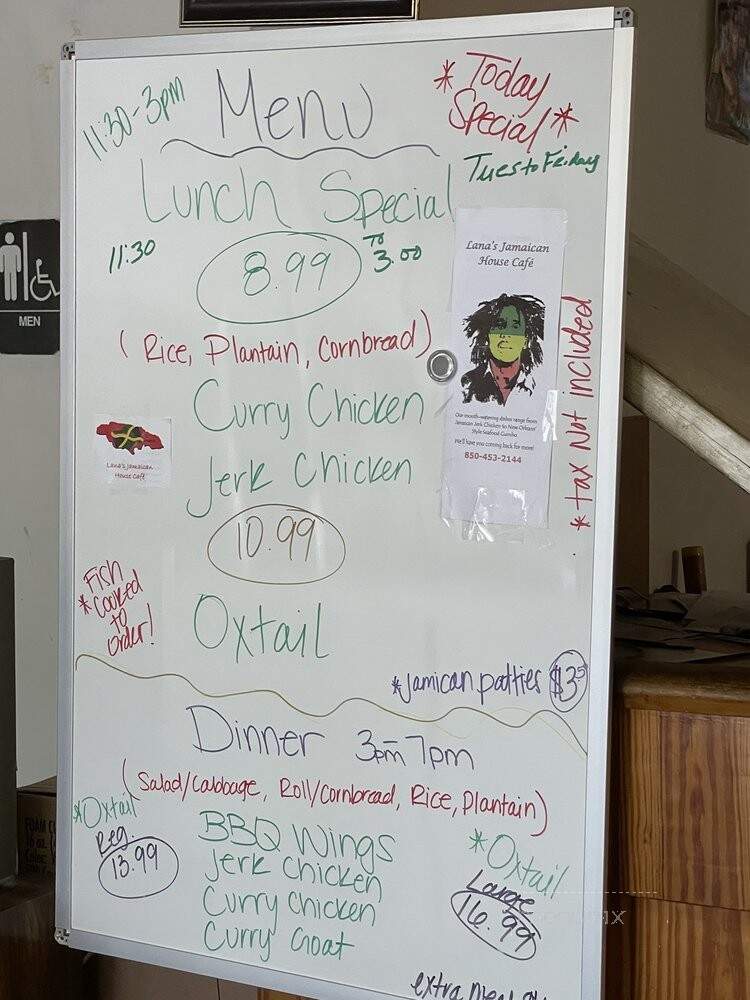 11:30-3pm
Menu
* Today
Special *
Tues to Friday
Lunch Special
11:30
8.99
TO
3.00
(Rice, Plantain, Cornbread)
Curry Chicken
Jerk Chicken
10.99
Oxtail
Lana's Jamaican
House Café
Our mouth-watering dishes range from
Jamaican Jerk Chicken to New Orleans'
Style Seafood Gumbo
We'll have you coming back for more!
850-453-2144
* tax Not included
Lana's Jamaican
House Café
MEN
Fish
* Cooked
to
order!
*Jamican patties $3.5
Dinner 3pm-7pm
(Salad/Cabbage, Roll/Cornbread, Rice, Plantain)
*Oxtail
Reg.
13.99
BBQ Wings
Jerk Chicken
Curry Chicken
Curry Goat
*Oxtail
Large
16.99
extra